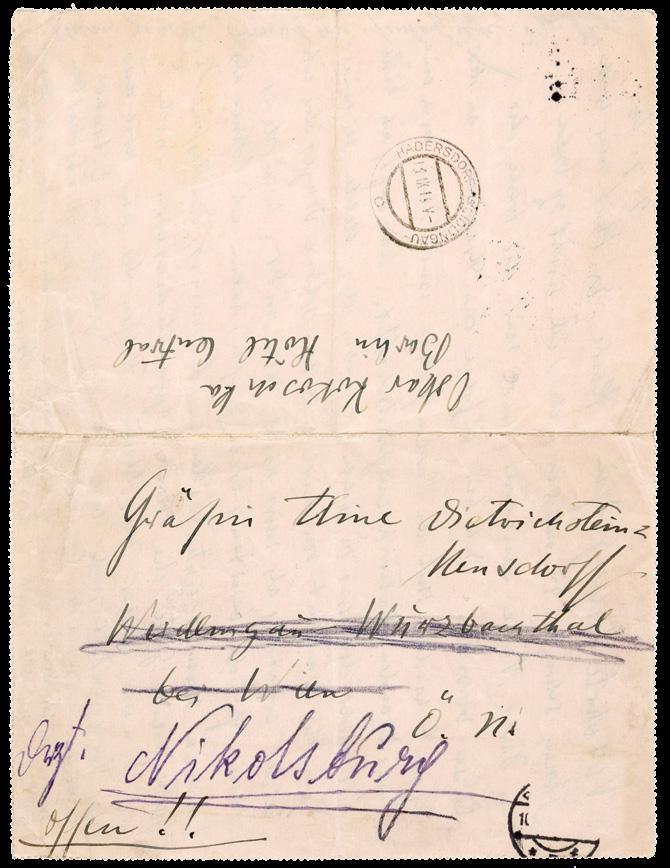 HADERSDORF-WEIDLINGAU
C
Oskar Kokoschka
Berlin Hôtel Central
Gräfin Aline Dietrichstein=
Mensdorff
Weidlingau Wurzbachthal
bei Wien
Ö. Ni
Nikolsburg
offen!!